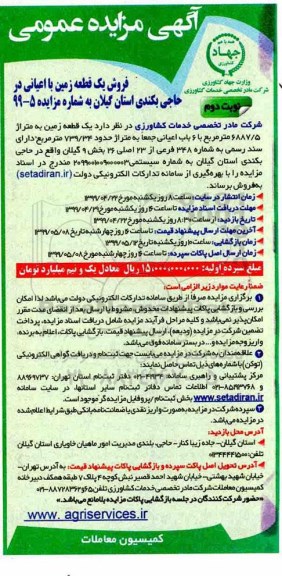 آگهی مزایده عمومی
جهاد
وزارت جهاد کشاورزی
شرکت مادر تخصصی خدمات کشاورزی
فروش یک قطعه زمین با اعیانی در
حاجی بکندی استان گیلان به شماره مزایده ۵-۹۹
نوبت دوم
شرکت مادر تخصصی خدمات کشاورزی در نظر دارد یک قطعه زمین به متراژ
۶۸۸۷/۵ مترمربع با ۶ باب اعیانی جمعا به متراژ حدود ۷۳۹/۳۴ مترمربع دارای
سند رسمی به شماره ۳۴۸ فرعی از ۲۳ اصلی ۲۶ بخش ۹ گیلان واقع در حاجی
بکندی استان گیلان به شماره سیستمی مندرج در اسناد
مزایده را با بهره‌گیری از سامانه تدارکات الکترونیکی دولت (setadiran.ir)
به‌فروش برساند.
زمان انتشار در سایت: ساعت ۸ روز یکشنبه مورخ ۱۳۹۹/۰۴/۲۲
مهلت دریافت اسناد مزایده تا ساعت روز یکشنبه مورخ
تاریخ بازدید: از ساعت ۸:۳۰ روز یکشنبه مورخ ۱۳۹۹/۰۴/۲۲
آخرین مهلت ارسال پیشنهاد قیمت: تا ساعت روز چهارشنبه تاریخ ۱۳۹۹/۰۵/۰۸
زمان بازگشایی: ساعت ۱۰ روز یکشنبه تاریخ ۱۳۹۹/۰۵/۱۲
زمان ارسال اصل پاکات سپرده: تا ساعت روز چهارشنبه مورخ ۱۳۹۹/۰۵/۰۸
مبلغ سپرده اولیه: ریال معادل یک و نیم میلیارد تومان
ضمناً رعایت موارد زیر الزامی است:
۱ برگزاری مزایده صرفاً از طریق سامانه تدارکات الکترونیکی دولت می‌باشد لذا امکان
بررسی و بازگشایی پاکات پیشنهادات مخدوش، مشروط یا ارسال بعد از انقضای مدت مقرر
امکان‌پذیر نمی‌باشد و کلیه مراحل فرآیند مزایده شامل دریافت اسناد مزایده، پرداخت
تضمین شرکت در مزایده (ودیعه)، ارسال پیشنهاد قیمت، بازگشایی پاکات، اعلام به برنده،
واریز وجه مزایده و... در بستر سامانه فوق می‌باشد.
۲ علاقمندان به شرکت در مزایده می‌بایست جهت ثبت‌نام و دریافت گواهی الکترونیکی
(توکن) با شماره‌های ذیل تماس حاصل نمایند:
مرکز پشتیبانی و راهبری سامانه: دفتر ثبت‌نام استان تهران: ۸۸۹۶۹۷۳۷
و ۸۵۱۹۳۷۶۸-۰۲۱ اطلاعات تماس دفاتر ثبت‌نام سایر استانها، در سایت سامانه
www.setadiran.ir بخش ثبت‌نام/پروفایل مزایده‌گر موجود است.
۳ سپرده شرکت در مزایده به‌صورت واریز نقدی یا ضمانت‌نامه بانکی طبق شرایط اعلام شده
در مزایده می‌باشد.
آدرس محل بازدید:
استان گیلان- جاده زیبا کنار- حاجی بکندی مدیریت امور ماهیان خاویاری استان گیلان
تلفن:
آدرس تحویل اصل پاکات سپرده و بازگشایی پاکات پیشنهاد قیمت: به آدرس تهران-
خیابان شهید بهشتی- خیابان شهید احمد قصیر نبش کوچه ۴ پلاک ۷ طبقه همکف دبیرخانه
کمیسیون معاملات شرکت مادر تخصصی خدمات کشاورزی تلفن:
«حضور شرکت کنندگان در جلسه بازگشایی پاکات مزایده بلامانع می‌باشد.»
www. agriservices.ir
کمیسیون معاملات